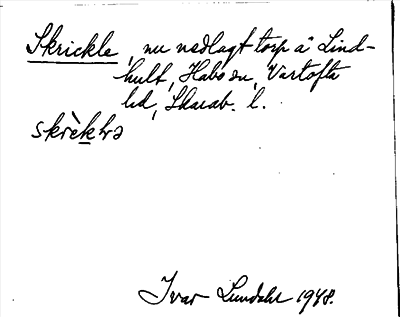 Skrickle, nu nedlagt torp å Lind-
hult, Habo sn, Vartofta
hd, Skarab. l.
skrèklə
Ivar Lundahl 1948.